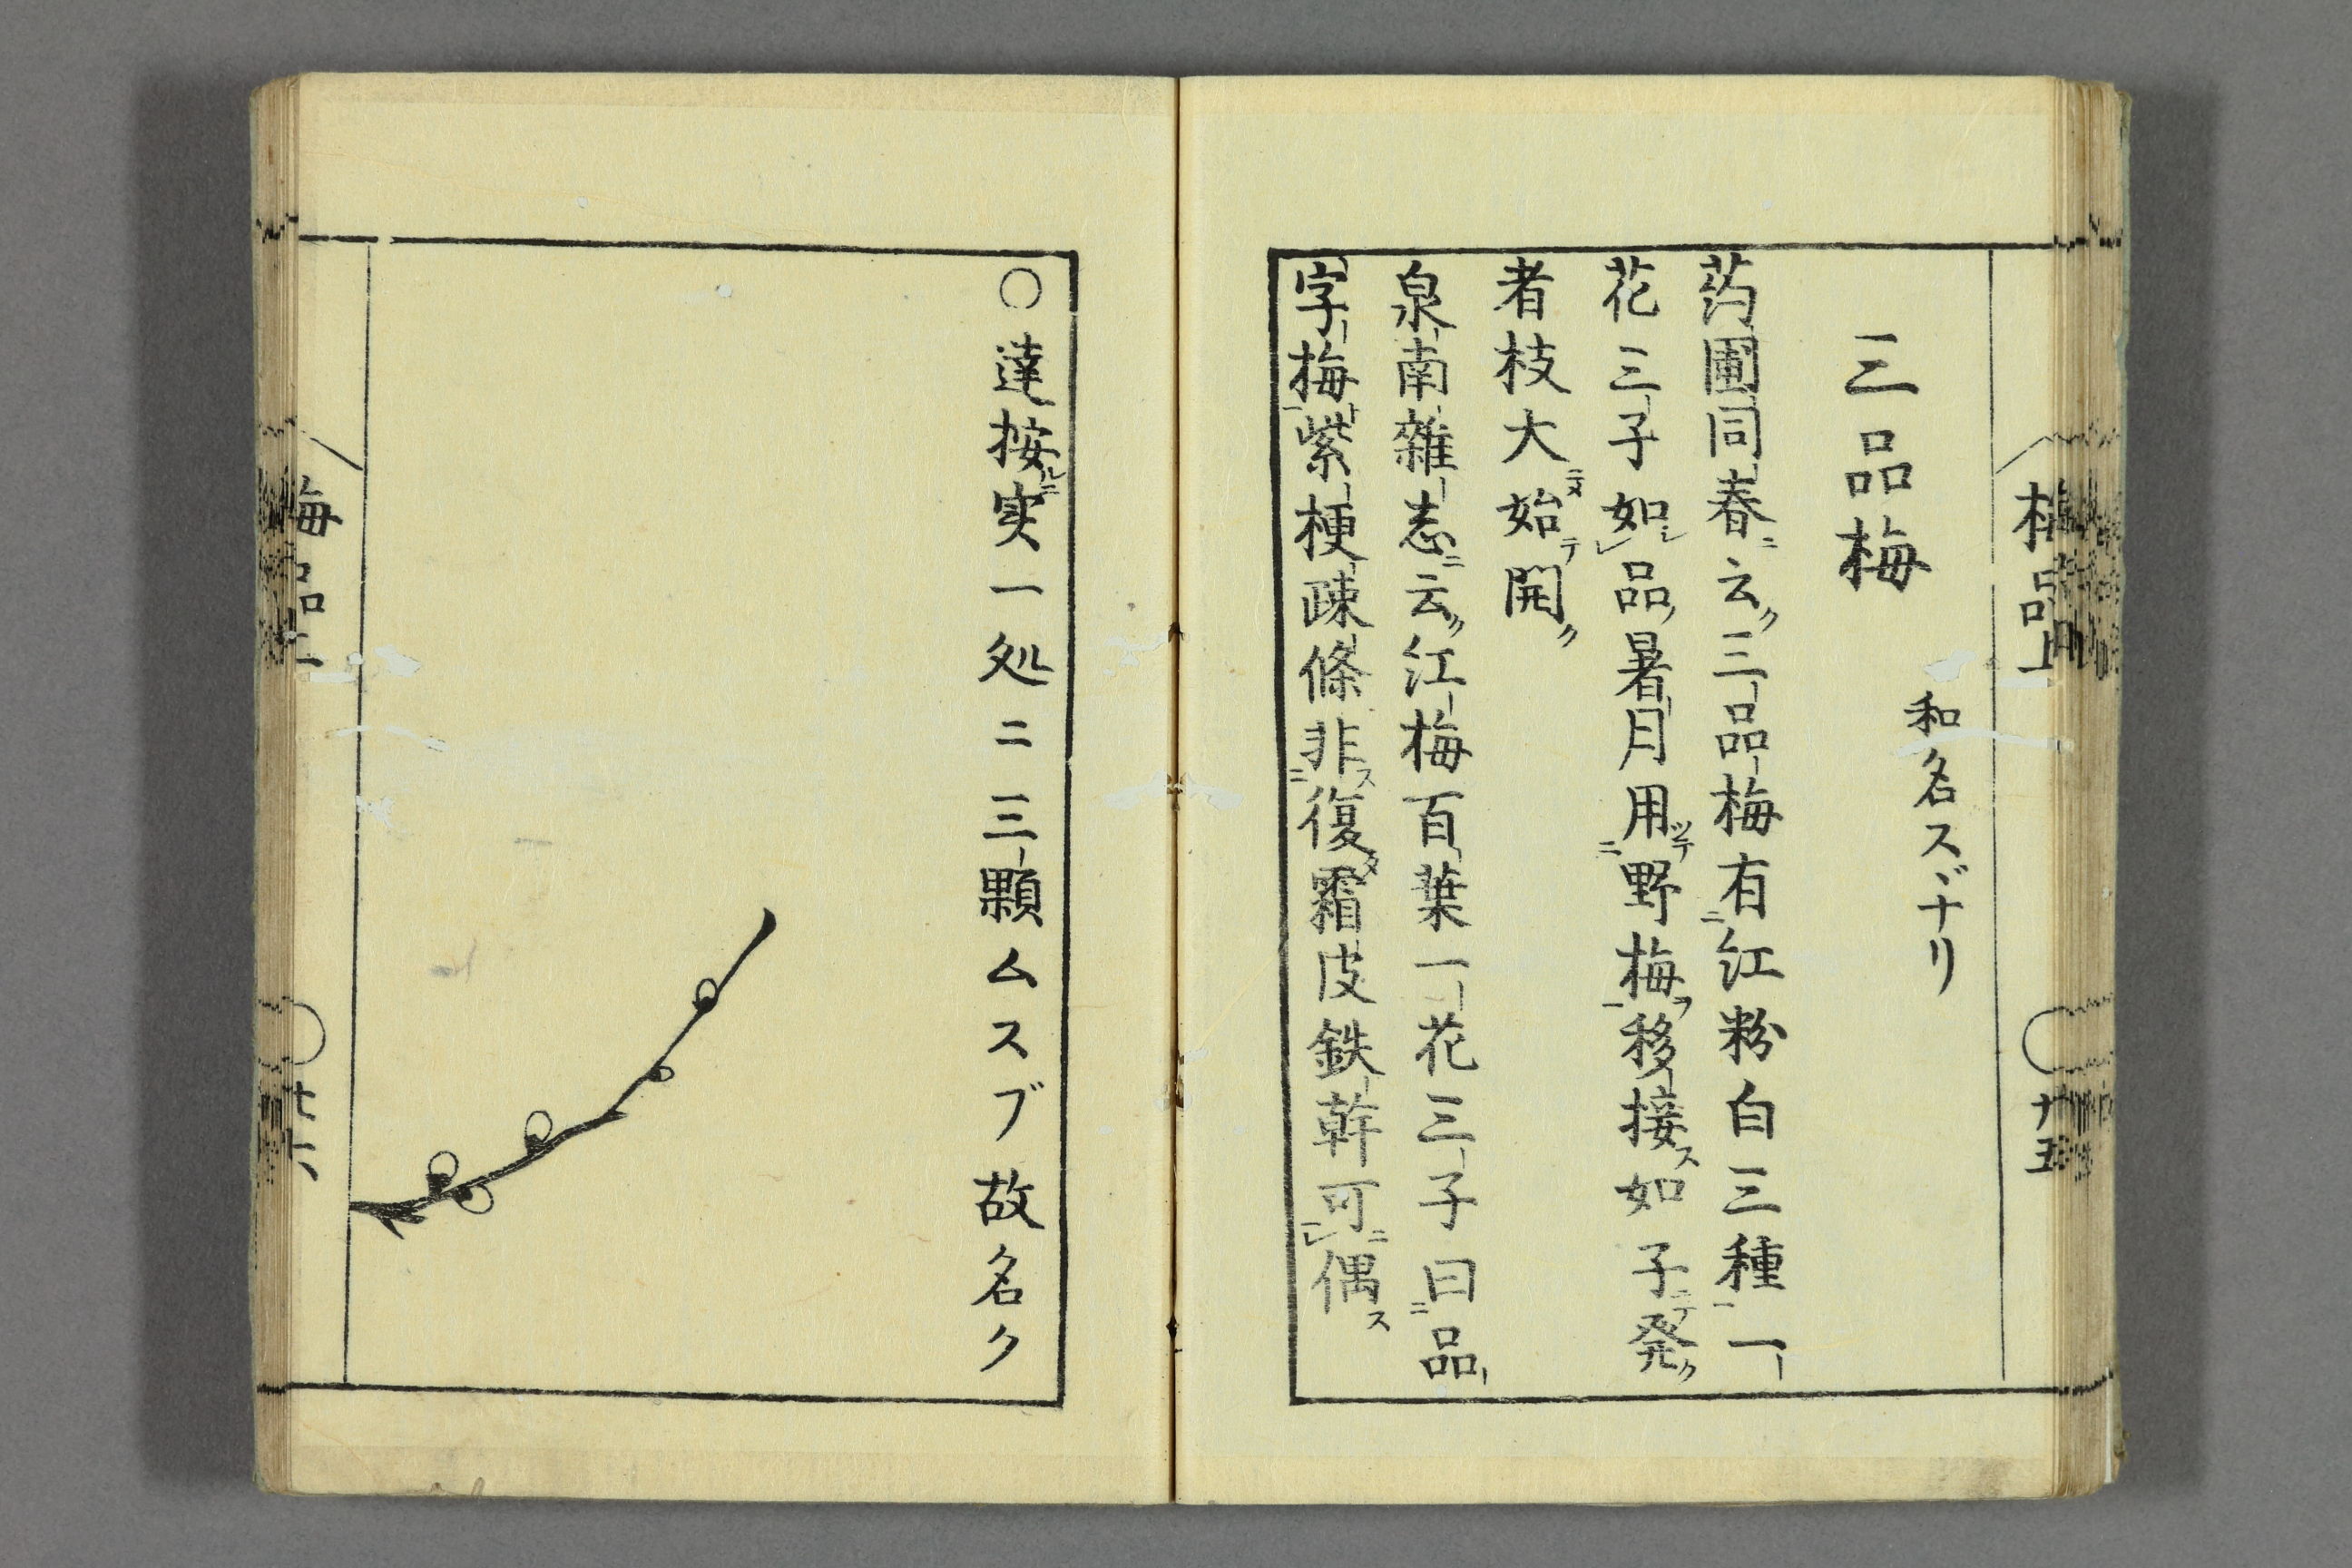 梅品上
十五
和名スヾナリ
三品梅
葯圃同春ニ云ク三品梅有二紅粉白三種一一
花三子如シレ品暑月用ッテ二野梅ヲ一移接ス如子ニテ発ク
者枝大ニメ始テ開ク
泉南雜志ニ云ク江梅百葉一花三子曰二品
字梅一紫梗疎條非ス二復タ霜皮鉄幹可ニレ偶ス
○達按ルニ実一処ニ三顆ムスブ故名ク
梅品上
十六